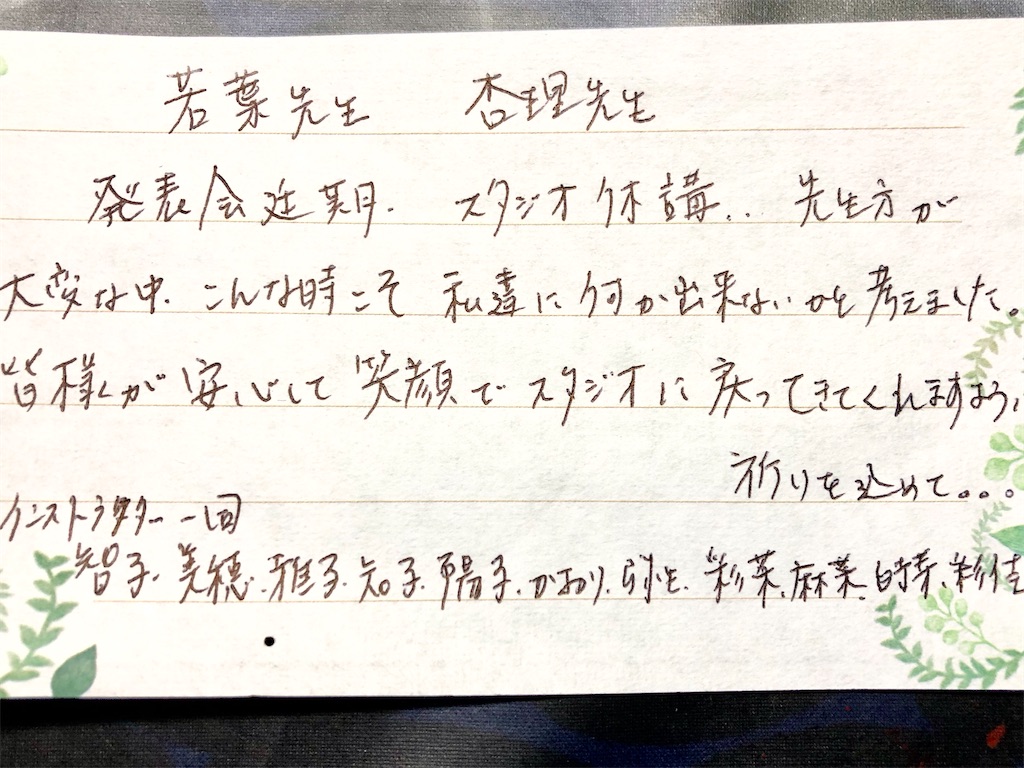 若葉先生 杏理先生
発表会延期. スタジオ休講.. 先生方が
大変な中. こんな時こそ 私達に何か出来ないかを考えました。
皆様が安心して笑顔でスタジオに戻ってきてくれますように
祈りを込めて...
インストラクター一同
智子. 美穂. 雅子. 知子. 陽子. かおり. 弥生. 彩菜. 麻葉. 時菜. 彩佳